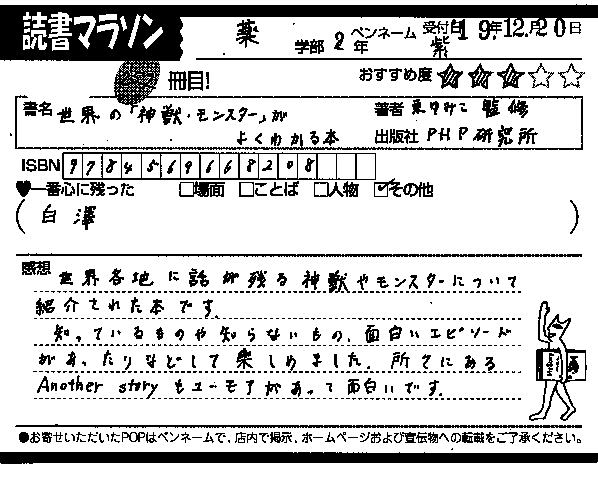 読書マラソン
薬 学部 2年 ペンネーム 紫 受付日 19年12月20日
冊目! おすすめ度 ★★★☆☆
書名 世界の「神獣・モンスター」が よくわかる本
著者 東ゆみこ 監修
出版社 PHP研究所
ISBN 9784569668208
♥一番心に残った □場面 □ことば □人物 ☑その他
(白澤)
感想 世界各地に話が残る神獣やモンスターについて
紹介された本です。
知っているものや知らないもの、面白いエピソード
があったりなどして楽しめました。所々にある
Another storyもユーモアがあって面白いです。
●お寄せいただいたPOPはペンネームで、店内で掲示、ホームページおよび宣伝物への転載をご了承ください。